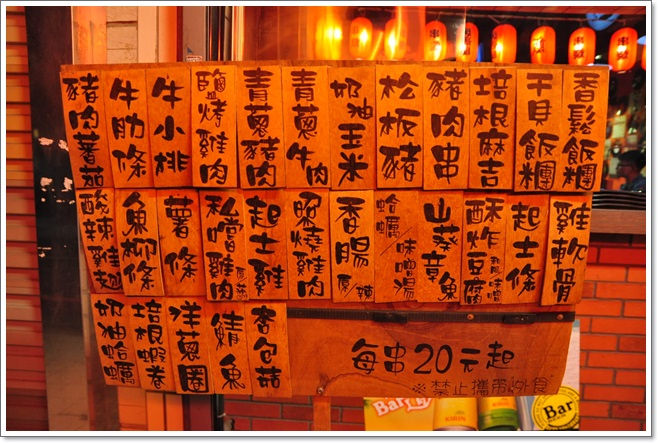 香鬆飯糰
干貝飯糰
培根麻吉
豬肉串
松板豬
奶油玉米
青蔥牛肉
青蔥豬肉
鹽烤雞肉
牛小排
牛肋條
豬肉蕃茄
雞軟骨
起士條
酥炸豆腐
香腸 原/辣
蛤蠣/味噌湯
照燒雞肉
起士雞
薯條
魚柳條
酸辣雞翅
杏包菇
鯖魚
洋蔥圈
培根蝦卷
奶油蛤蠣
每串20元起
※禁止攜帶外食
Bar
KIRIN
KIRIN
Bar